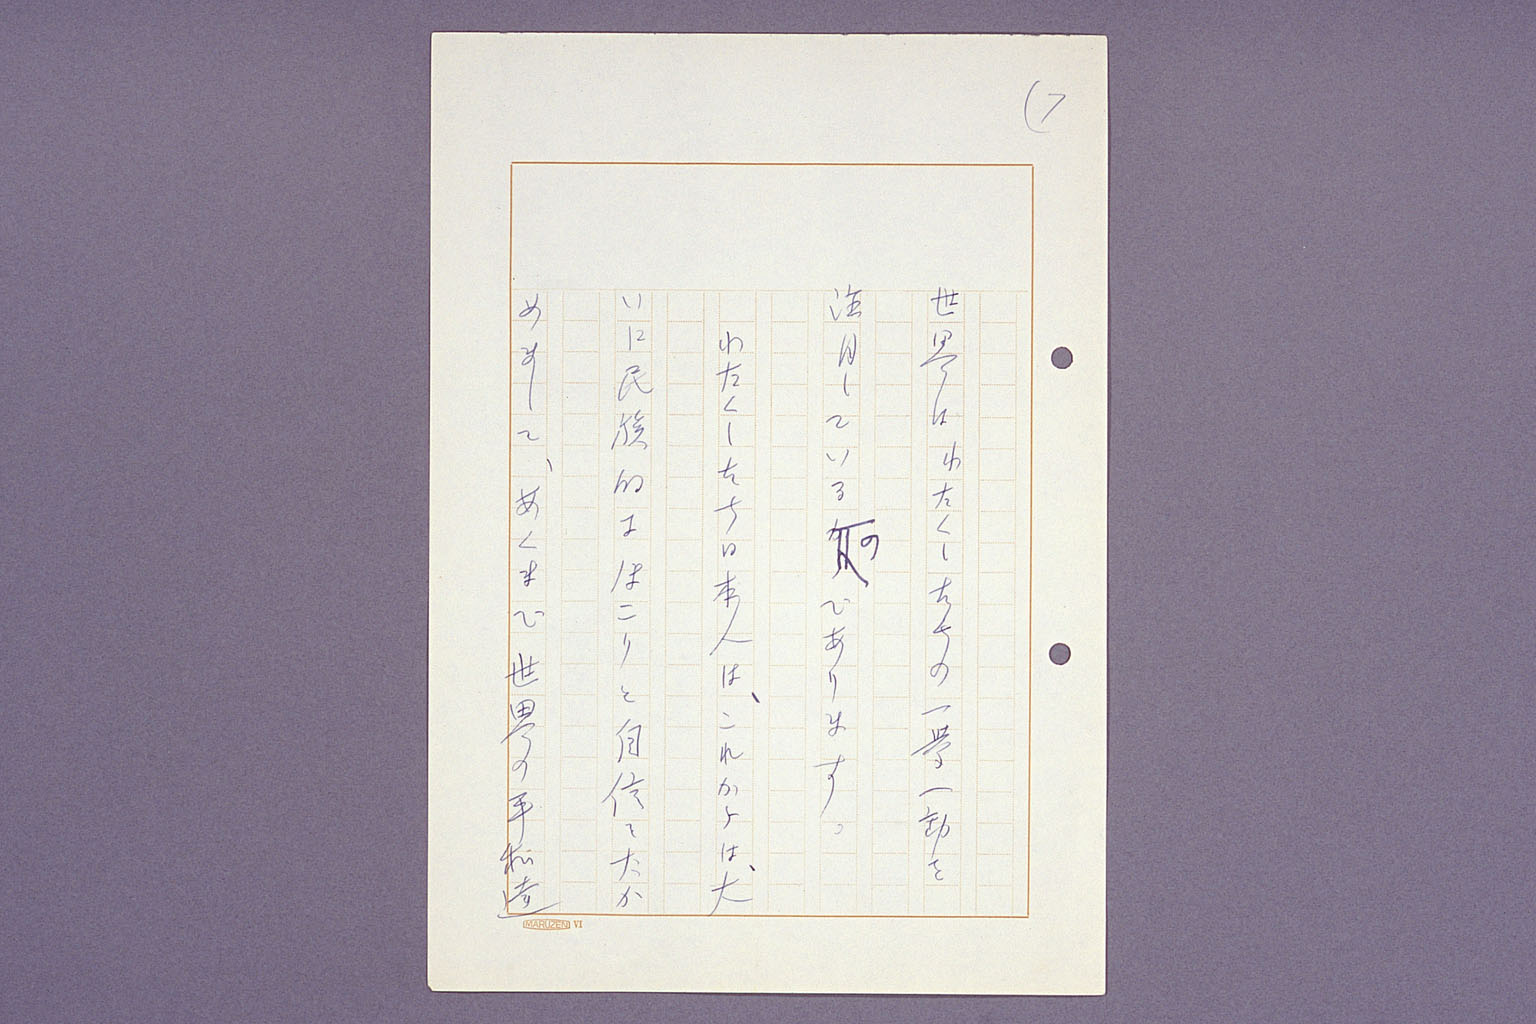 (7
世界はわたくしたちの一挙一動を
注目しているのであります。
わたくしたち日本人は、これからは、大
いに民族的なほこりと自信をたか
めまして、あくまで世界の平和達
MARUZEN VI